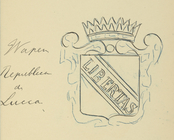 Wapen
Republica
di
Lucca
LIBERTAS